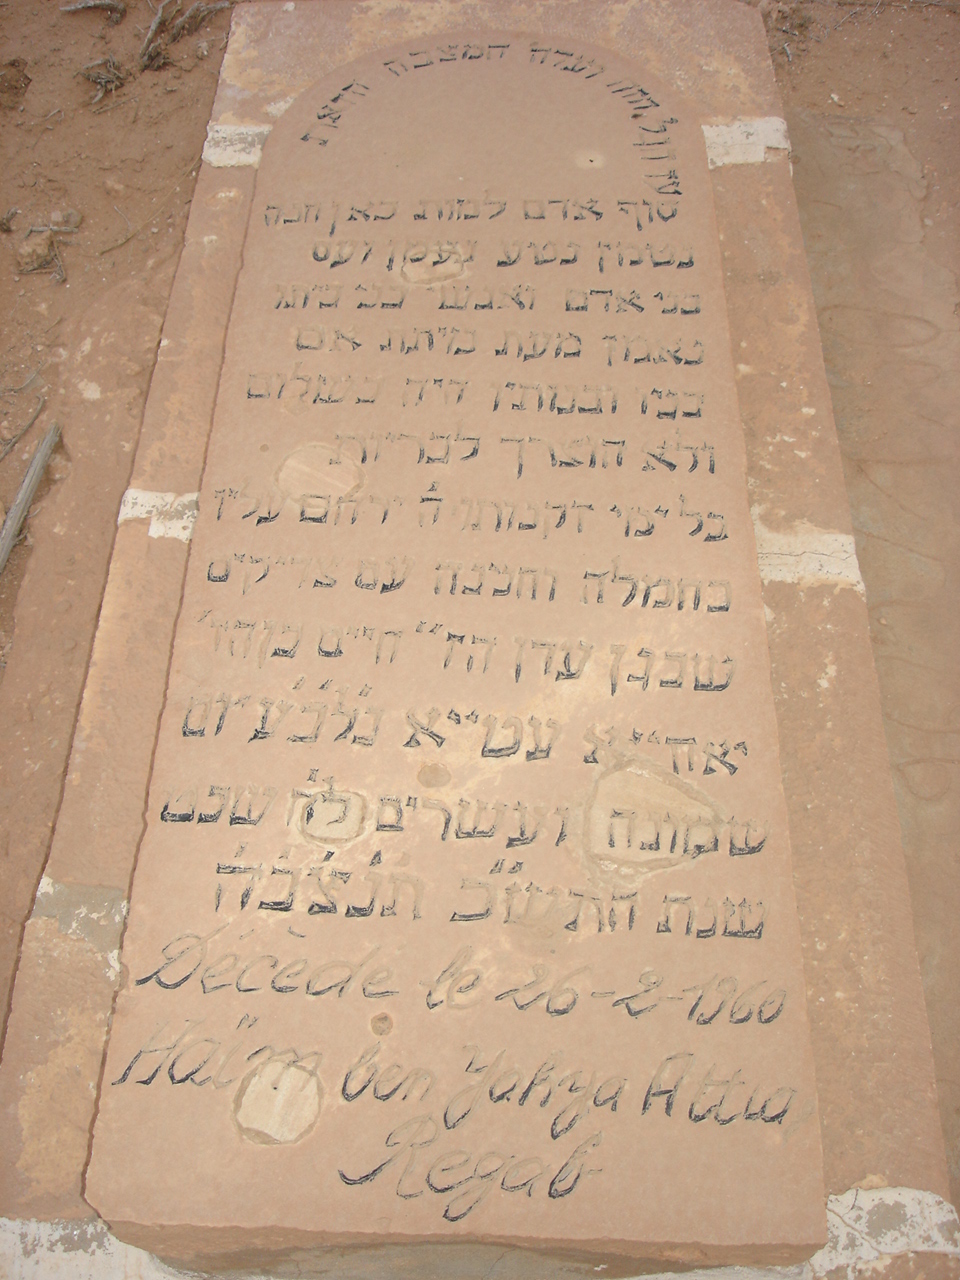 עד הגל הזה ועדה המצבה הזאת
סוף אדם למות כאן חנה
נטמון נטיע נעמן ועס
בני אדם ואנשי בני ביתו
נאמן מעת מיתת אם
בניו ובנותיו היה בשלום
ולא הוצרך לבריות
כל ימי זקנותו ה' ירחם עליו
בחמלה וחנינה עם צדיקים
שבגן עדן הר' חיים בן הר'
יאחייא עטייא נלב״ע יום
שמונה ועשרים לח׳ שבט
שנת התש״כ תנצבה
Décède le 26-2-1960
Haïm ben Yahya Attia
Regab